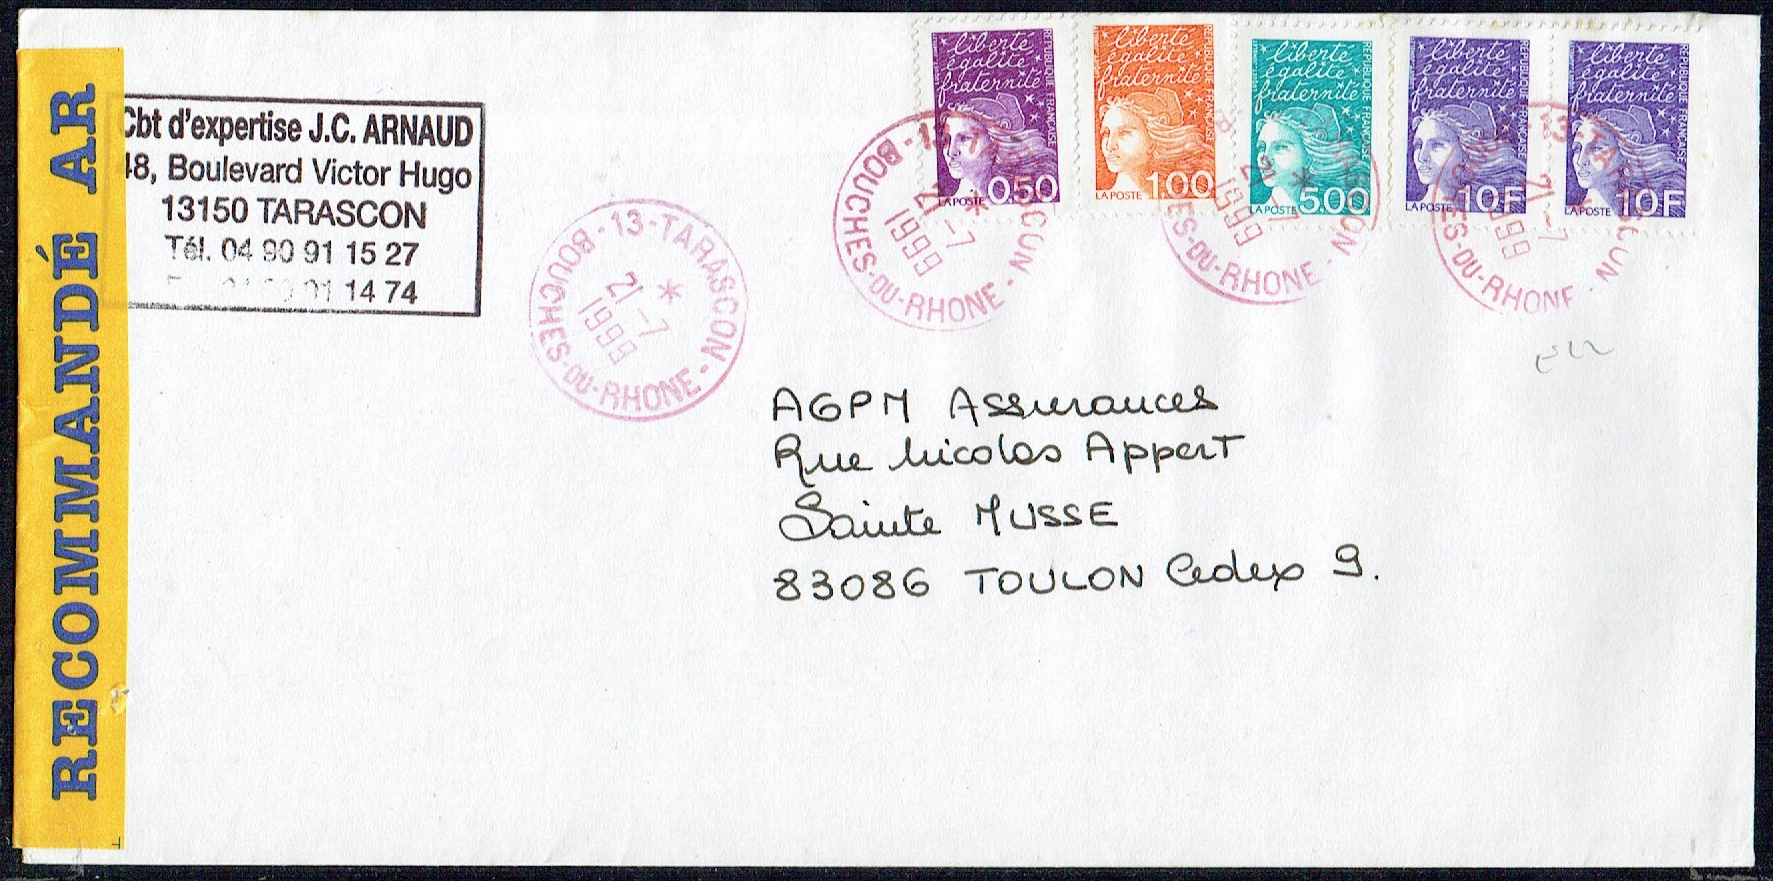 RECOMMANDÉ AR
Cbt d'expertise J.C. ARNAUD
48, Boulevard Victor Hugo
13150 TARASCON
Tél. 04 90 91 15 27
91 14 74
13-TARASCON
21-7
1999
BOUCHES-DU-RHONE
liberté
égalité
fraternité
RÉPUBLIQUE FRANÇAISE
LA POSTE 0,50
liberté
égalité
fraternité
RÉPUBLIQUE FRANÇAISE
LA POSTE 1,00
liberté
égalité
fraternité
RÉPUBLIQUE FRANÇAISE
LA POSTE 5,00
liberté
égalité
fraternité
RÉPUBLIQUE FRANÇAISE
LA POSTE 10F
liberté
égalité
fraternité
RÉPUBLIQUE FRANÇAISE
LA POSTE 10F
13-TARASCON
21-7
1999
BOUCHES-DU-RHONE
21-7
1999
DU-RHONE
13-TARASCON
21-7
1999
DU-RHONE
AGPM Assurances
Rue Nicolas Appert
Sainte MUSSE
83086 TOULON Cedex 9.